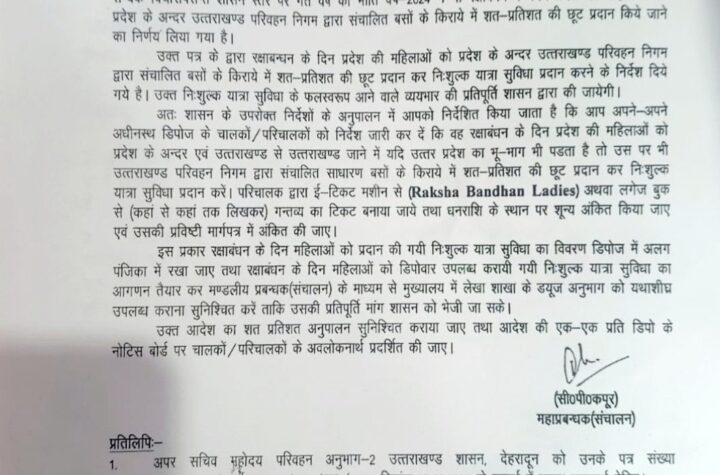 प्रदेश के अन्दर उत्तराखण्ड परिवहन निगम द्वारा संचालित बसों के किराये में शत–प्रतिशत की छूट प्रदान किये जाने
का निर्णय लिया गया है।
उक्त पत्र के द्वारा रक्षाबन्धन के दिन प्रदेश की महिलाओं को प्रदेश के अन्दर उत्तराखण्ड परिवहन निगम
द्वारा संचालित बसों के किराये में शत–प्रतिशत की छूट प्रदान कर निःशुल्क यात्रा सुविधा प्रदान करने के निर्देश दिये
गये है। उक्त निःशुल्क यात्रा सुविधा के फलस्वरूप आने वाले व्ययभार की प्रतिपूर्ति शासन द्वारा की जायेगी।
अतः शासन के उपरोक्त निर्देशों के अनुपालन में आपको निर्देशित किया जाता है कि आप अपने–अपने
अधीनस्थ डिपोज के चालकों/परिचालकों को निर्देश जारी कर दें कि वह रक्षाबंधन के दिन प्रदेश की महिलाओं को
प्रदेश के अन्दर एवं उत्तराखण्ड से उत्तराखण्ड जाने में यदि उत्तर प्रदेश का भू–भाग भी पडता है तो उस पर भी
उत्तराखण्ड परिवहन निगम द्वारा संचालित साधारण बसों के किराये में शत–प्रतिशत की छूट प्रदान कर निःशुल्क
यात्रा सुविधा प्रदान करें। परिचालक द्वारा ई–टिकट मशीन से (Raksha Bandhan Ladies) अथवा लगेज बुक
से (कहां से कहां तक लिखकर) गन्तव्य का टिकट बनाया जाये तथा धनराशि के स्थान पर शून्य अंकित किया जाए
एवं उसकी प्रविष्टी मार्गपत्र में अंकित की जाए।
इस प्रकार रक्षाबंधन के दिन महिलाओं को प्रदान की गयी निःशुल्क यात्रा सुविधा का विवरण डिपोज में अलग
पंजिका में रखा जाए तथा रक्षाबंधन के दिन महिलाओं को डिपोवार उपलब्ध करायी गयी निःशुल्क यात्रा सुविधा का
आगणन तैयार कर मण्डलीय प्रबन्धक(संचालन) के माध्यम से मुख्यालय में लेखा शाखा के डयूज अनुभाग को यथाशीघ्र
उपलब्ध कराना सुनिश्चित करें ताकि उसकी प्रतिपूर्ति मांग शासन को भेजी जा सके।
उक्त आदेश का शत प्रतिशत अनुपालन सुनिश्चित कराया जाए तथा आदेश की एक–एक प्रति डिपो के
नोटिस बोर्ड पर चालकों/परिचालकों के अवलोकनार्थ प्रदर्शित की जाए।
(सी0पी0कपूर)
महाप्रबन्धक(संचालन)
प्रतिलिपिः–
1. अपर सचिव महोदय परिवहन अनुभाग–2 उत्तराखण्ड शासन, देहरादून को उनके पत्र संख्या